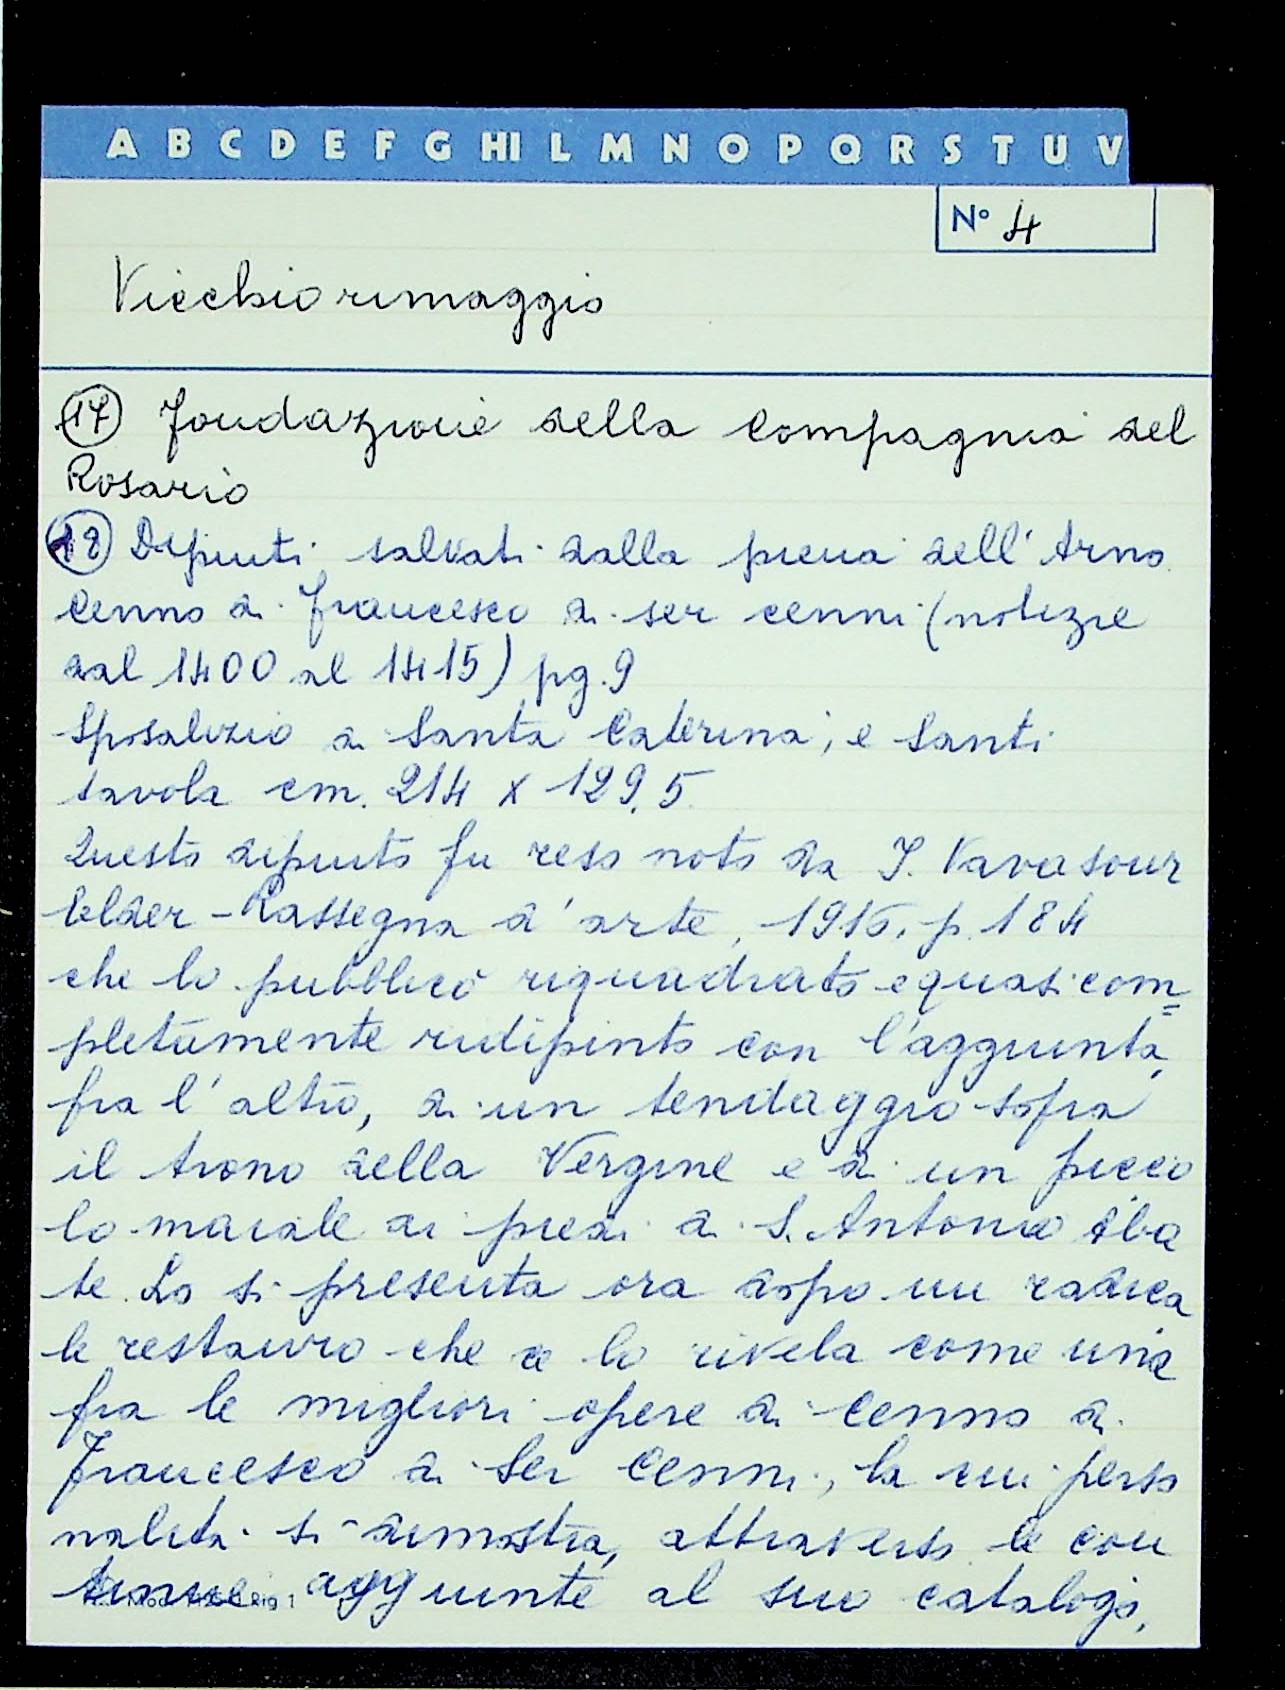 A B C D E F G HI L M N O P Q R S T U V
N° 4
Vicchiorimaggio
17 Fondazione della Compagnia del
Rosario
18 Dipinti salvati dalla piena dell'Arno
Cenno di Francesco di ser cenni (notizie
dal 1400 al 1415) pg. 9
Sposalizio di Santa Caterina, e Santi
tavola cm. 214 x 129,5
Questo dipinto fu reso noto da J. Vavasour
Elder - Rassegna d'arte, 1916, p. 184
che lo pubblicò riquadrato e quasi com=
pletamente ridipinto con l'aggiunta,
fra l'altro, di un tendaggio sopra
il trono della Vergine e di un picco
lo maiale ai piedi di S. Antonio Aba
te. Lo si presenta ora dopo un radica
le restauro che ce lo rivela come una
fra le migliori opere di Cenno di
Francesco di Ser Cenni, la cui perso
nalità si dimostra, attraverso le con
tinue aggiunte al suo catalogo,
Rig 1